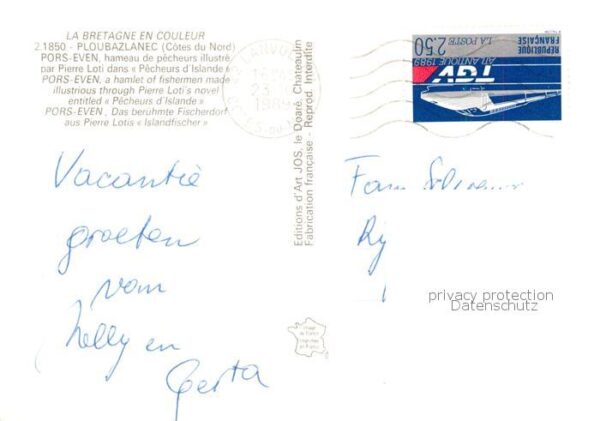 LA BRETAGNE EN COULEUR
2.1850 - PLOUBAZLANEC (Côtes du Nord)
PORS-EVEN, hameau de pêcheurs illustré
par Pierre Loti dans « Pêcheurs d'Islande »
PORS-EVEN, a hamlet of fishermen made
illustrious through Pierre Loti's novel
entitled « Pêcheurs d'Islande »
PORS-EVEN, Das berühmte Fischerdorf
aus Pierre Lotis « Islandfischer »
Vacantie
groeten
van
Nelly en
Gerta
Editions d'Art JOS, le Doaré, Chateaulin
Fabrication française - Reprod. Interdite
RÉPUBLIQUE
FRANÇAISE
LA POSTE 2,50
ATLANTIQUE 1989
TGV
23
1989
Fam
privacy protection
Datenschutz